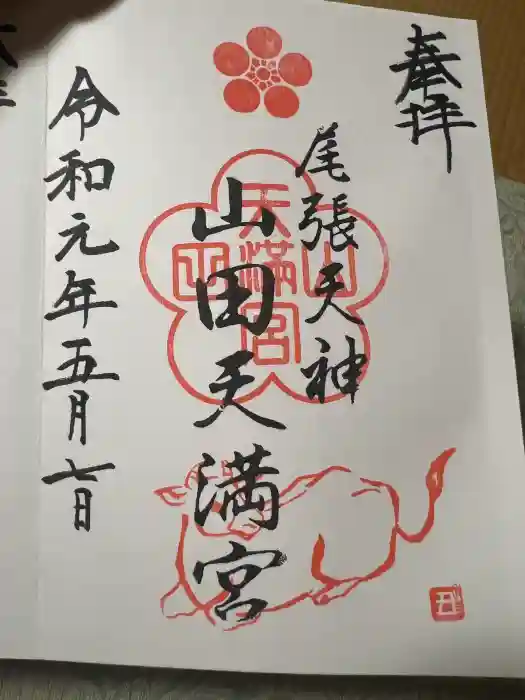 奉拝
尾張天神
山田天満宮
山田天満宮
令和元年五月七日
丑